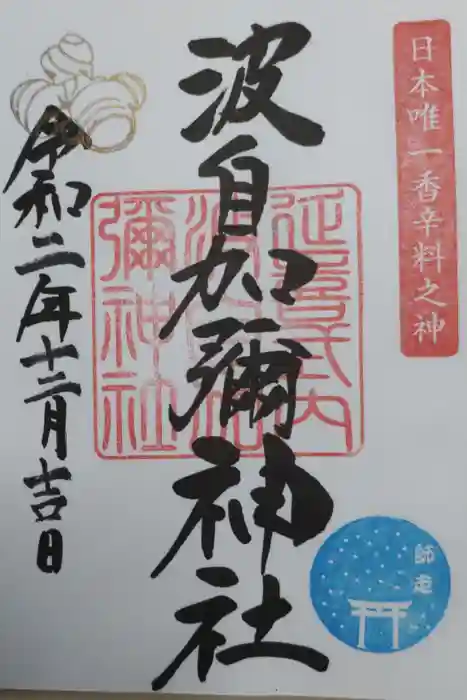 日本唯一香辛料之神
波自加彌神社
延喜式内
波自加
彌神社
令和二年十二月吉日
師走